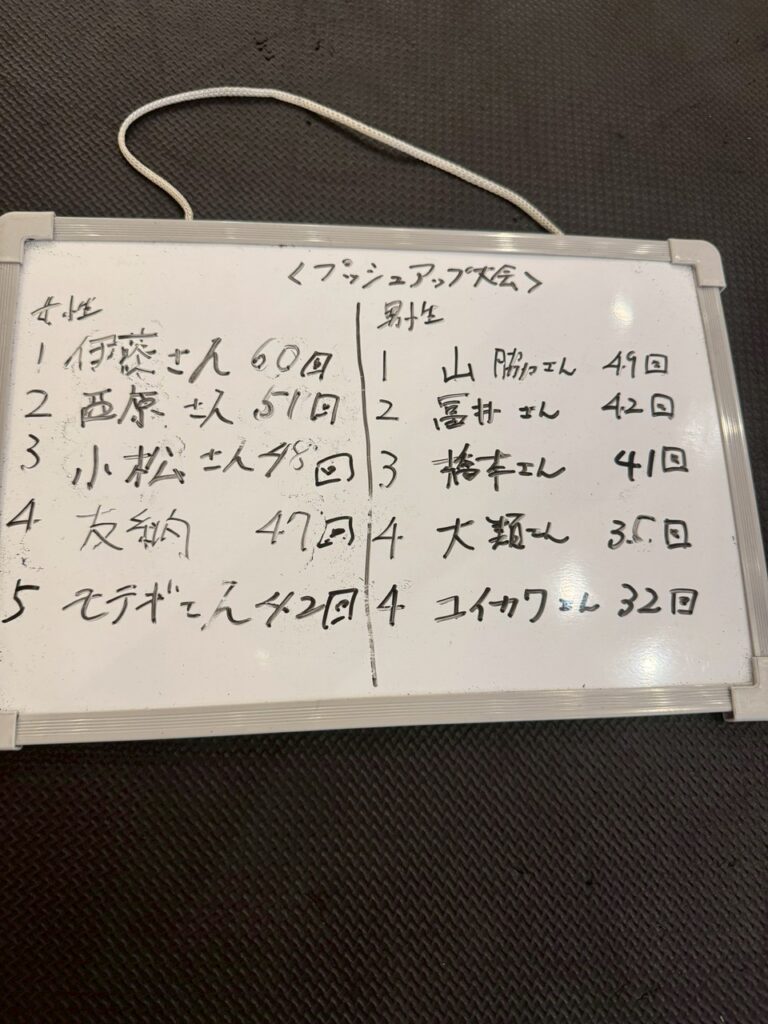 <プッシュアップ大会>
女性
1 伊藤さん 60回
2 西原さん 51回
3 小松さん 48回
4 友納 47回
5 モテギさん 42回
男性
1 山脇さん 49回
2 冨井さん 42回
3 橋本さん 41回
4 大類さん 35回
4 ユイカワさん 32回